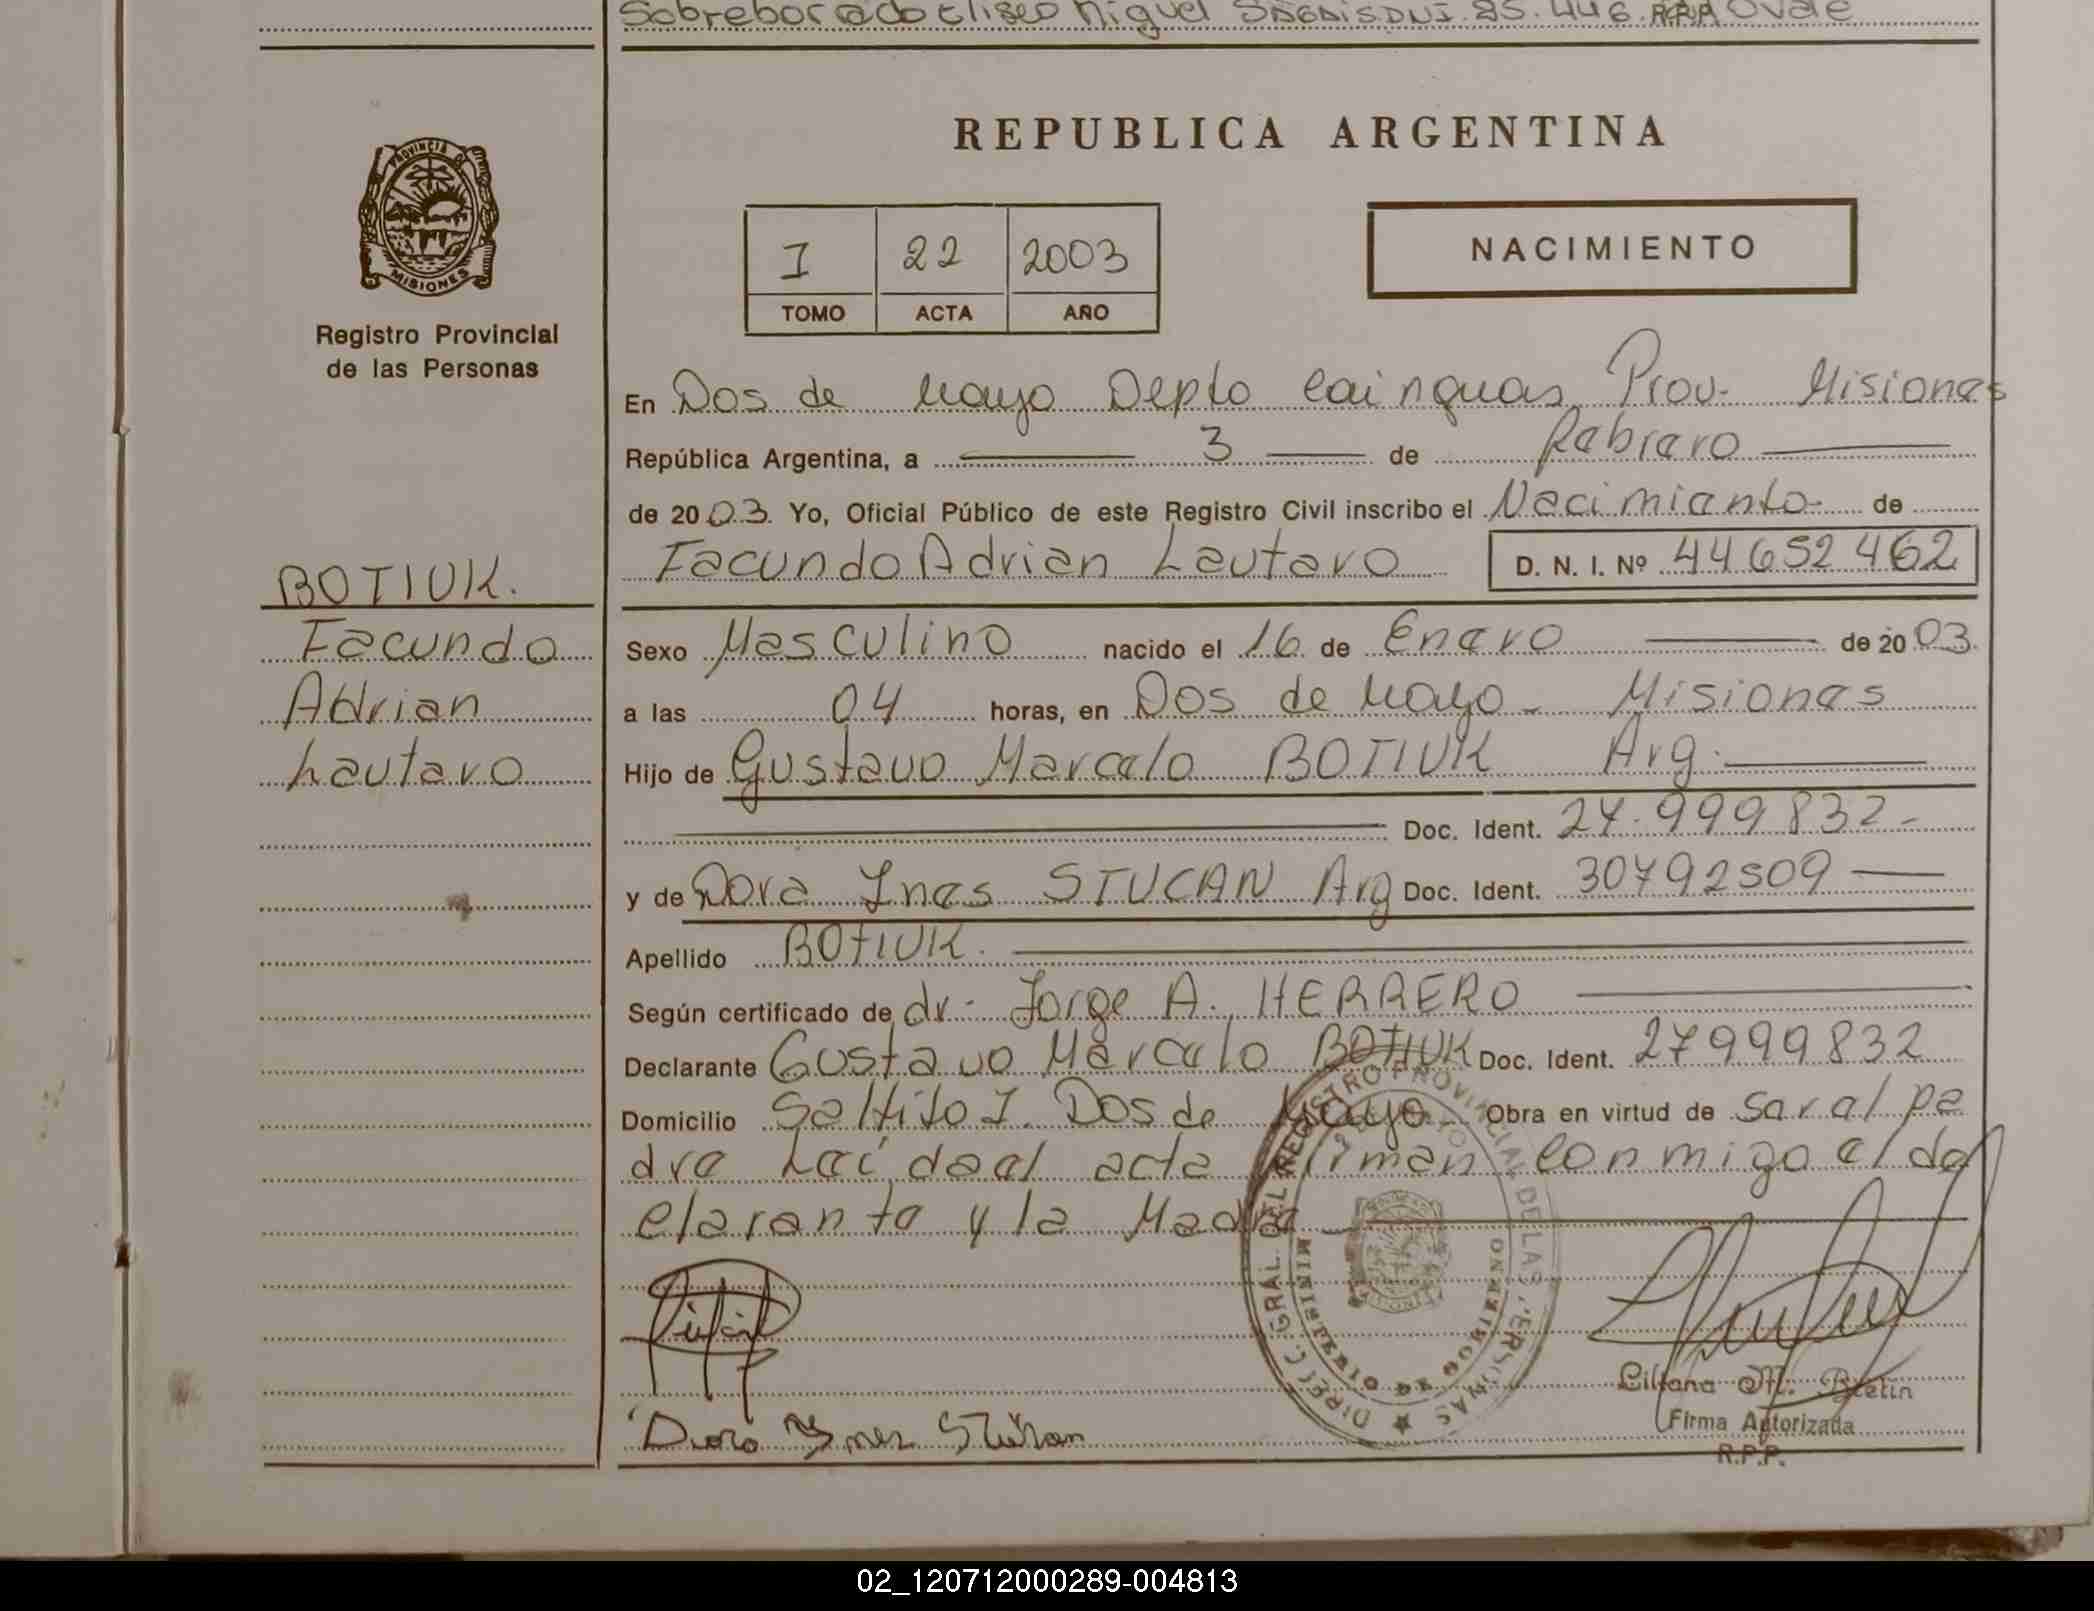 Sobreborrado Eliseo Miguel
REPUBLICA ARGENTINA
PROVINCIA D
MISIONES
Registro Provincial
de las Personas
I 22 2003
TOMO ACTA AÑO
NACIMIENTO
En Dos de Mayo Depto Cainguas Prov. Misiones
República Argentina, a 3 de Febrero
de 2003. Yo, Oficial Público de este Registro Civil inscribo el Nacimiento de
Facundo Adrian Lautaro D. N. I. Nº 44652462
BOTIUK.
Facundo
Adrian
Lautaro
Sexo Masculino nacido el 16 de Enero de 2003.
a las 04 horas, en Dos de Mayo - Misiones
Hijo de Gustavo Marcelo BOTIUK Arg.
Doc. Ident. 27.999832-
y de Dora Ines STUCAN Arg Doc. Ident. 30792509
Apellido BOTIUK.
Según certificado de dr. Jorge A. HERRERO
Declarante Gustavo Marcelo BOTIUK Doc. Ident. 27999832
Domicilio Saltito I Dos de Mayo Obra en virtud de ser al pa
dre Leída el acta firman conmigo el de
claranta y la Madre
DIREC. GRAL. DEL REGISTRO PROVINCIAL DE LAS PERSONAS
MINISTERIO DE GOBIERNO
Liliana M. Bretin
Firma Autorizada
R.P.P.
02_120712000289-004813